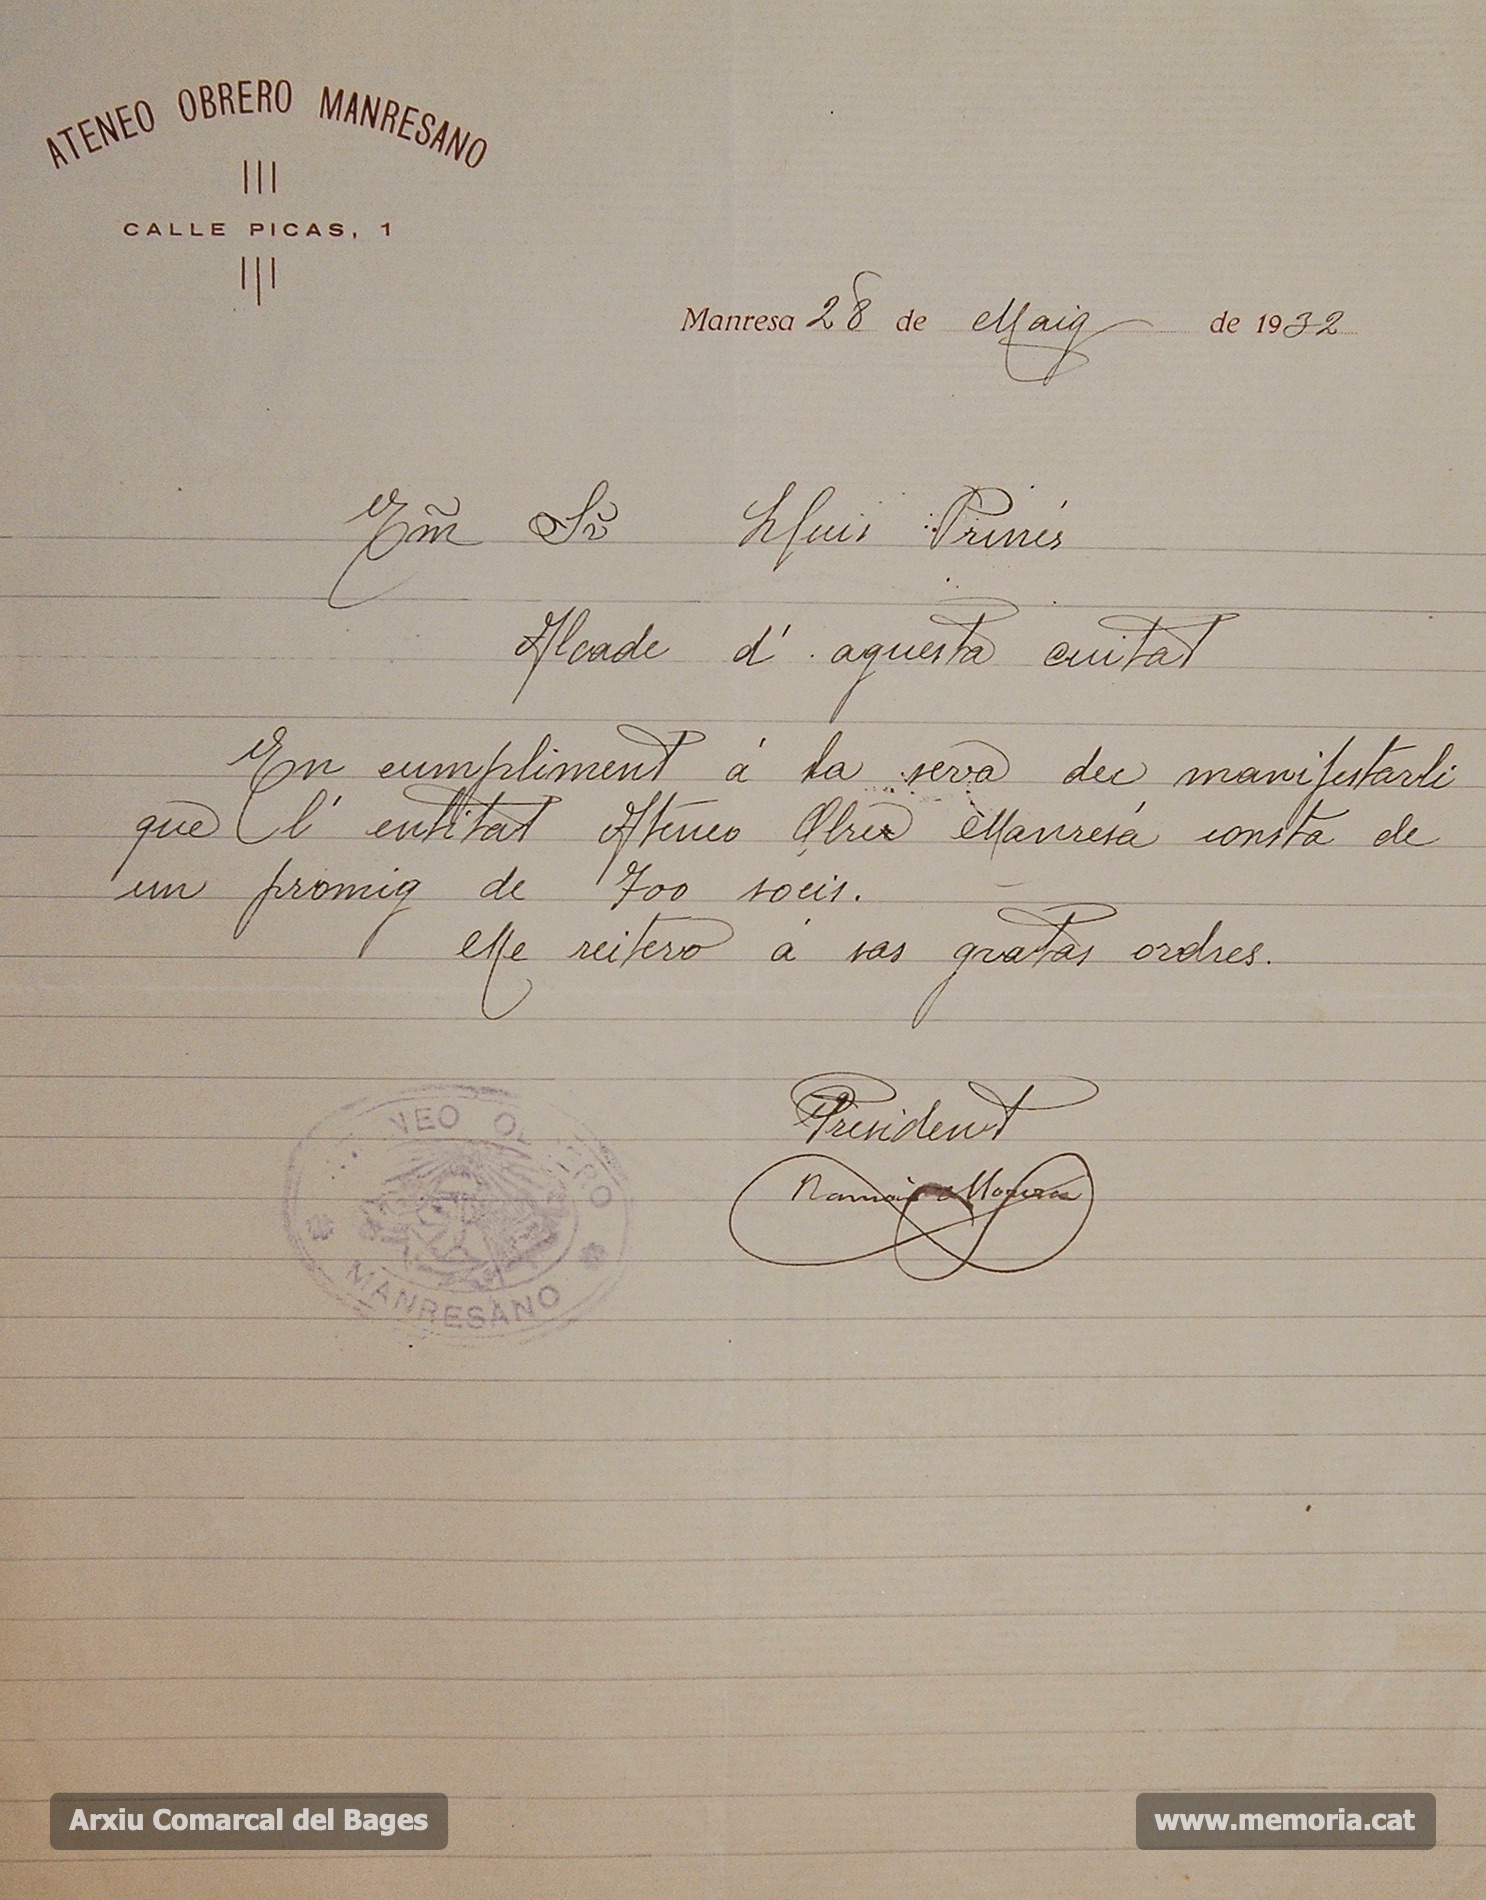 ATENEO OBRERO MANRESANO
CALLE PICAS, 1
Manresa 28 de Maig de 1932
Exm̃ Sr̃ Lluis Prunés
Alcade d' aquesta ciutat
En cumpliment á la seva dec manifestarli
que l' entitat Ateneo Obrer Manresá consta de
un promig de 700 socis.
Me reitero á sas gratas ordres.
President
Ramón
NEO OBRERO
MANRESANO
Arxiu Comarcal del Bages
www.memoria.cat